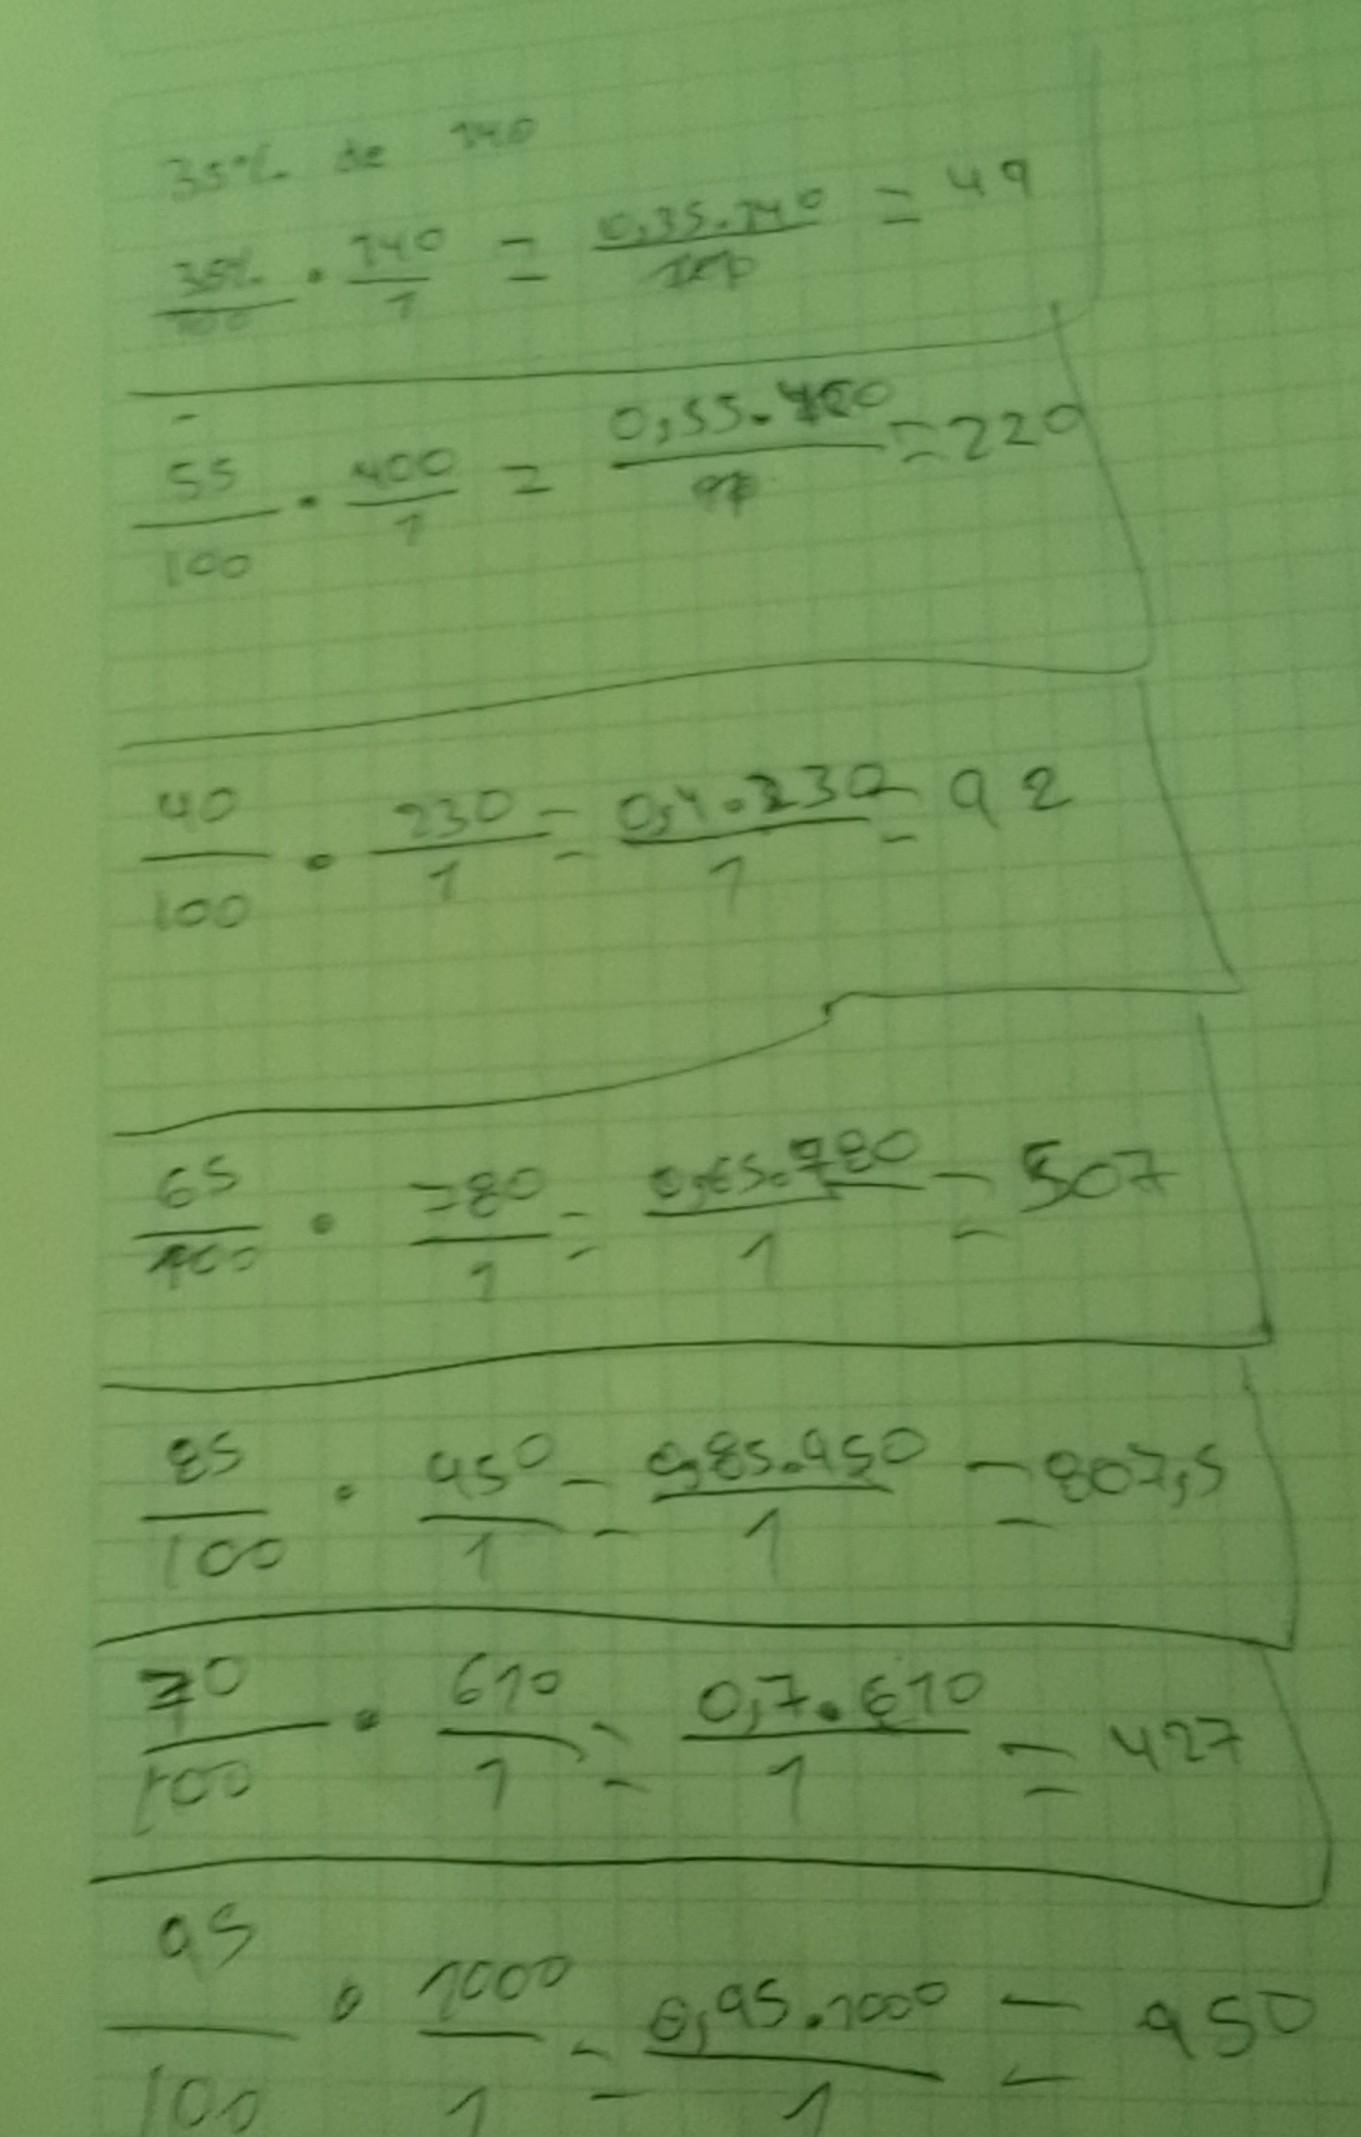 35% de 140
35%/100 · 140/1 = 0,35.140 = 49
55/100 · 400/1 = 0,55.400 = 220
40/100 · 230/1 = 0,4.230/1 = 92
65/100 · 780/1 = 0,65.780/1 = 507
85/100 · 950/1 = 0,85.950/1 = 807,5
70/100 · 610/1 = 0,7.610/1 = 427
95/100 · 1000/1 = 0,95.1000/1 = 950